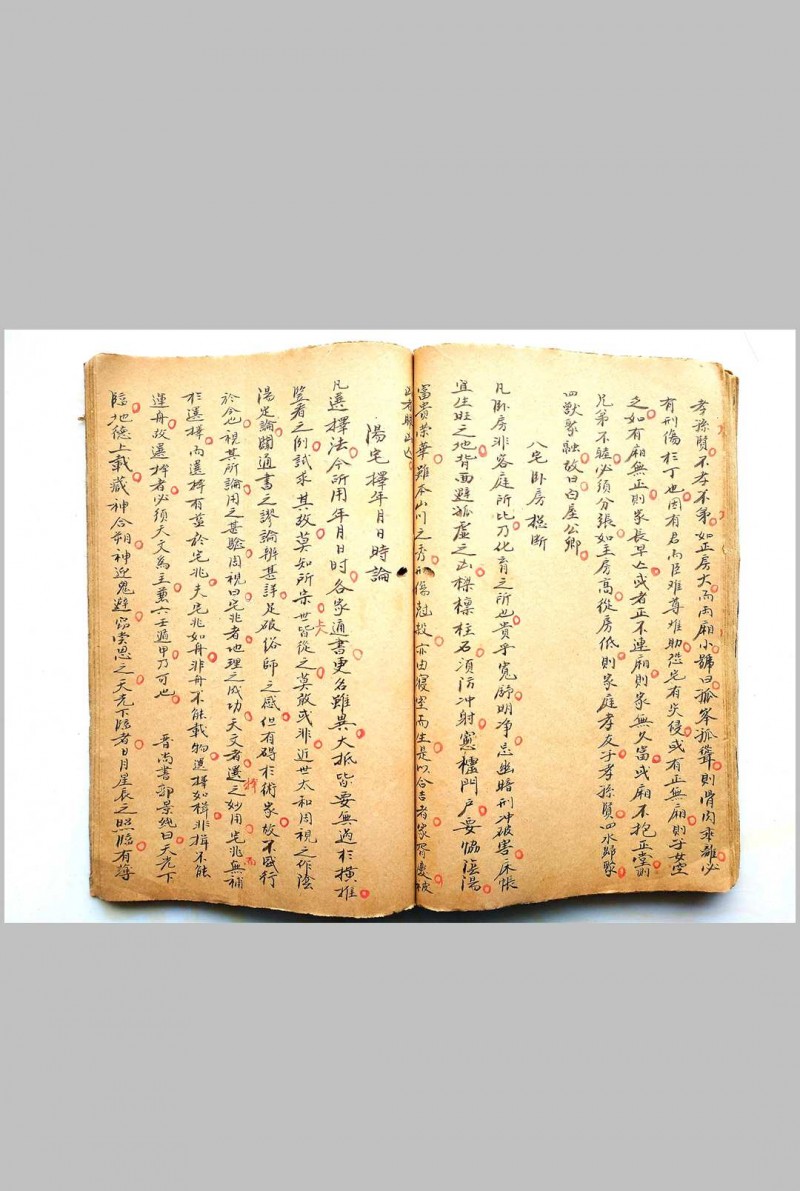 孝孫賢不孝不弟如正房大而両廂小號曰孤峯孤聳則骨肉乖離必
有刑傷於丁也因有君而臣难尊难助怨宅有尖侵或有正無廂則子女空
之如有廂無正則家長早亡或者正不連廂則家無久富或廂不抱正堂則
兄弟不睦必須分張如主房高從房低則家庭孝友子孝孫賢四水歸聚
四獸聚融故曰白屋公卿
八宅卧房總断
凡卧房非客庭所比乃化育之所也貴乎寬舒明净忌幽暗刑冲破害床帳
宜生旺之地背西避孤虛之凶樑檁柱石須防冲射窓櫺門户要恊陰陽
富貴榮華雖本山川之秀刑傷尅殺亦由寝室而生是以合吉者家宵受被
凶者賜凶也
陽宅擇年月日時論
凡選擇法今所用年月日时各家通書更名雖異大抵皆要無過於横推
竪看之例試求其故莫知所宗世皆從之莫敢或非近世太和周視之作陰
陽定論闢通書之謬論辨甚詳足破俗師之惑但有碍於術家故不盛行
於今也視其所論用之甚驗周視曰宅兆者地理之成功天文者選擇之妙用宅兆無補
於選擇而選擇有益於宅兆夫宅兆如舟非舟不能載物選擇如楫非楫不能
運舟故選擇者必須天文為主兼六壬遁甲乃可也 晋尚書郭景纯曰天光下
臨地德上載藏神合朔神迎鬼避窃嘗思之天光下臨者日月星辰之照臨有薄